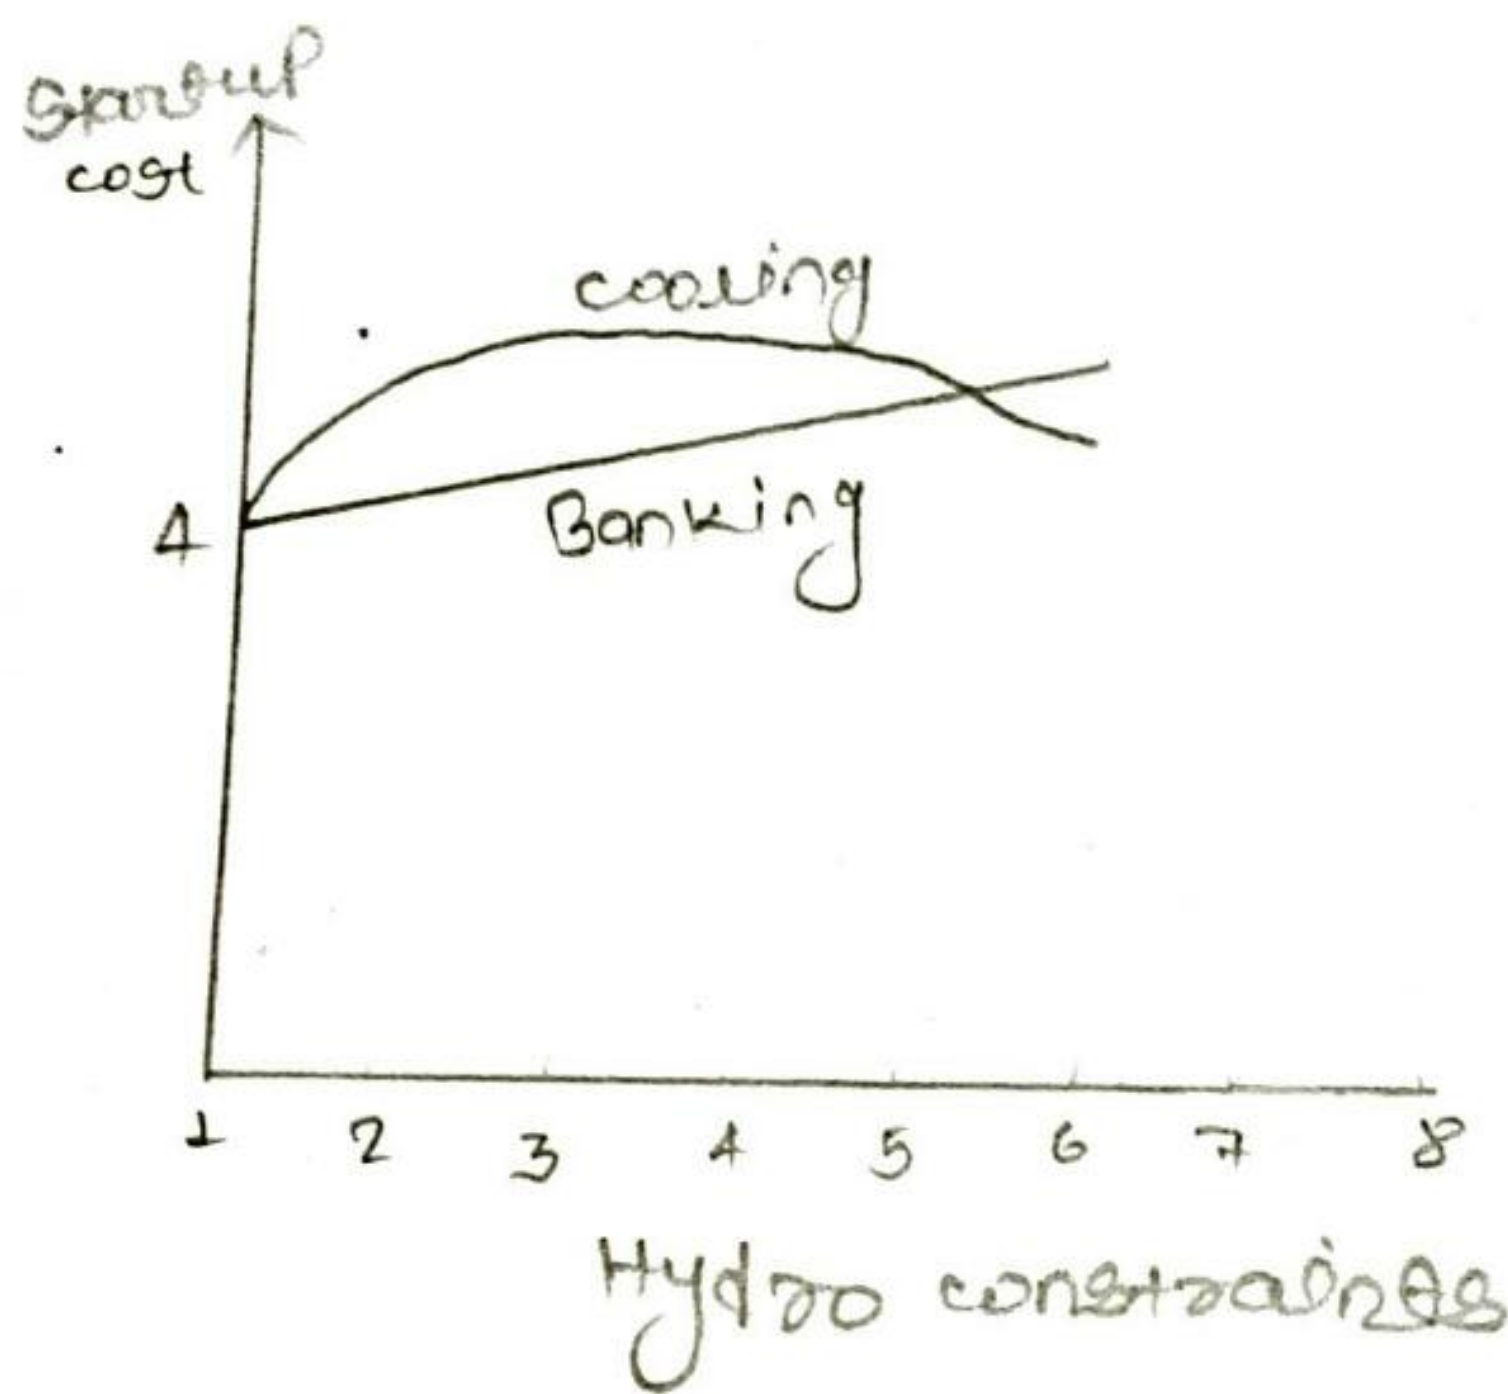 Startup
cost
cooling
4
Banking
1 2 3 4 5 6 7 8
Hydro constraints